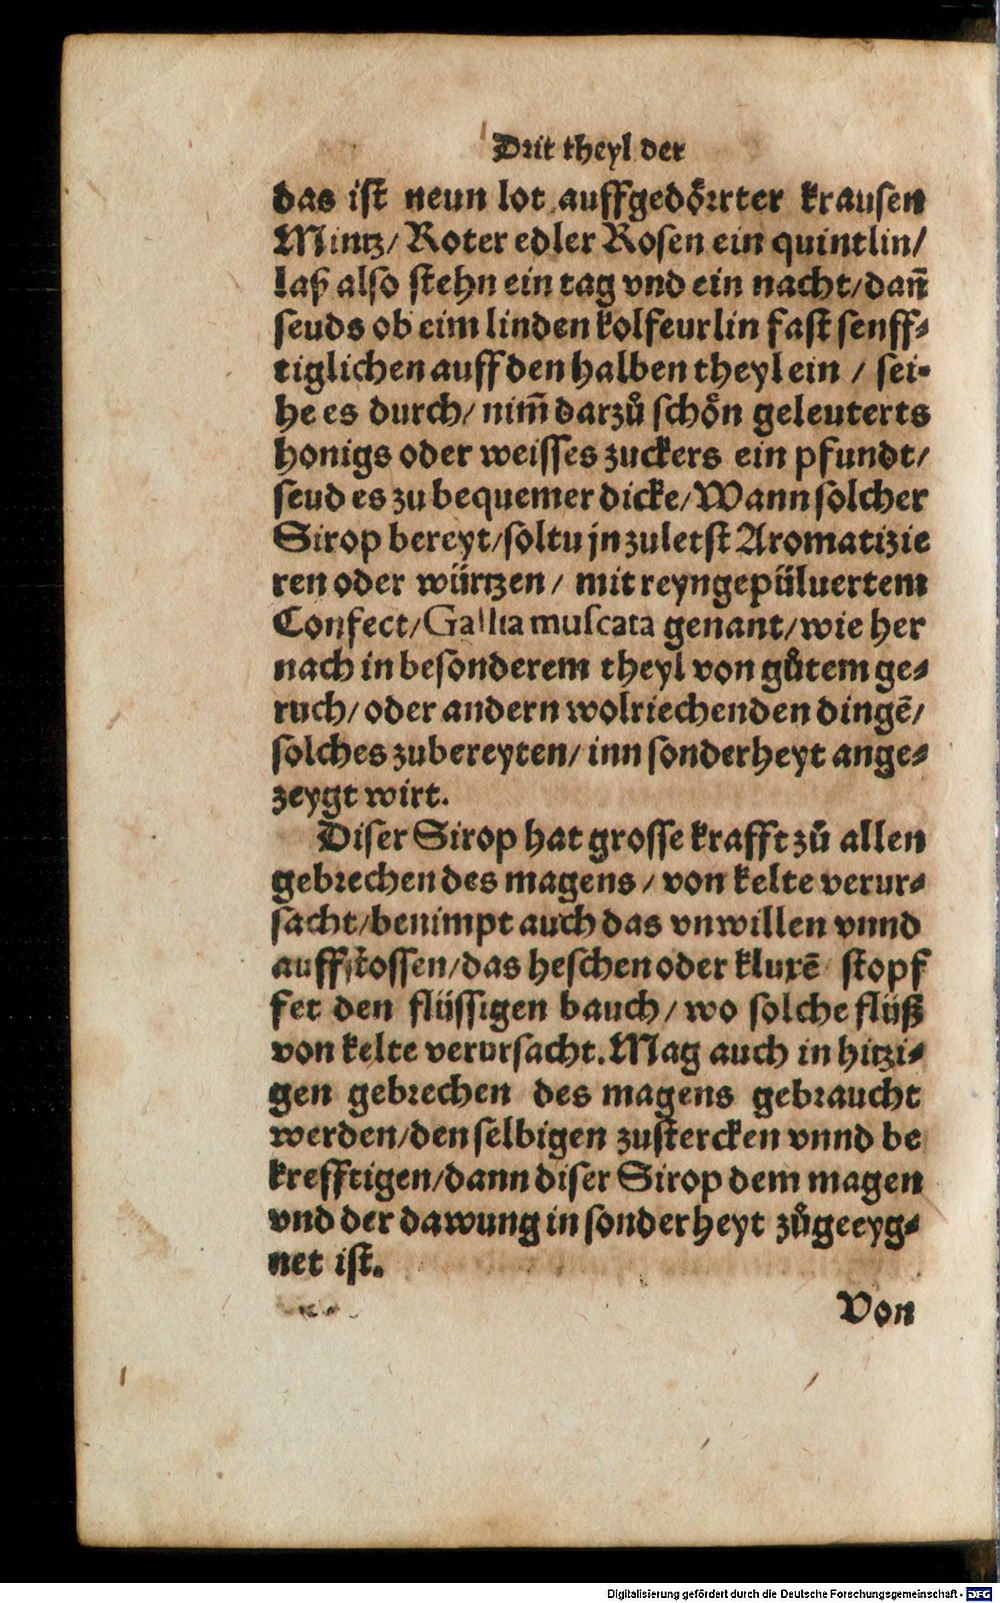 Drit theyl der
das ist neun lot auffgedörrter krausen
Mintz/ Roter edler Rosen ein quintlin/
laß also stehn ein tag vnd ein nacht/ dañ
seuds ob eim linden kolfeurlin fast senff⸗
tiglichen auff den halben theyl ein / sei⸗
he es durch/ nim̃ darzů schön geleuterts
honigs oder weisses zuckers ein pfundt/
seud es zu bequemer dicke/ Wann solcher
Sirop bereyt/ soltu jn zuletst Aromatizie
ren oder würtzen/ mit reyngepüluertem
Confect/ Gallia muscata genant/ wie her
nach in besonderem theyl von gůtem ge⸗
ruch/ oder andern wolriechenden dingẽ/
solches zubereyten/ inn sonderheyt ange⸗
zeygt wirt.
Diser Sirop hat grosse krafft zů allen
gebrechen des magens / von kelte verur⸗
sacht/ benimpt auch das vnwillen vnnd
auffstossen/ das heschen oder kluxẽ stopf
fet den flüssigen bauch/ wo solche flüß
von kelte verursacht. Mag auch in hitzi⸗
gen gebrechen des magens gebraucht
werden/ den selbigen zustercken vnnd be
krefftigen/ dann diser Sirop dem magen
vnd der dawung in sonderheyt zůgeeyg⸗
net ist.
Von
Digitalisierung gefördert durch die Deutsche Forschungsgemeinschaft - DFG